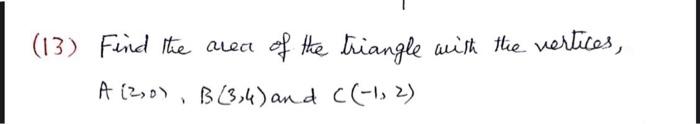 (13) Find the area of the triangle with the vertices,
A (2,0), B(3,4) and C(-1, 2)